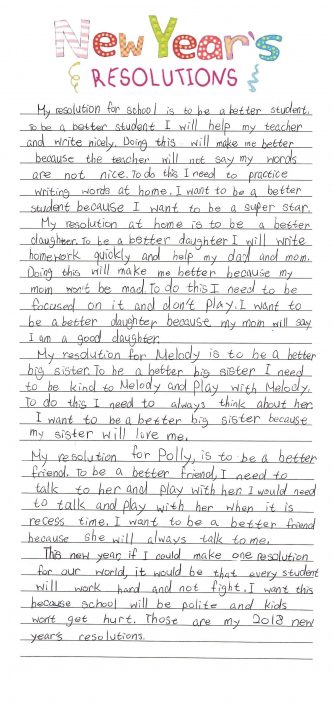 New Year's
RESOLUTIONS
My resolution for school is to be a better student.
To be a better student I will help my teacher
and write nicely. Doing this will make me better
because the teacher will not say my words
are not nice. To do this I need to practice
writing words at home. I want to be a better
student because I want to be a super star.
My resolution at home is to be a better
daughter. To be a better daughter I will write
homework quickly and help my dad and mom.
Doing this will make me better because my
mom won't be mad. To do this I need to be
focused on it and don't play. I want to
be a better daughter because my mom will say
I am a good daughter.
My resolution for Melody is to be a better
big sister. To be a better big sister I need
to be kind to Melody and play with Melody.
To do this I need to always think about her.
I want to be a better big sister because
my sister will love me.
My resolution for Polly, is to be a better
friend. To be a better friend, I need to
talk to her and play with her. I would need
to talk and play with her when it is
recess time. I want to be a better friend
because she will always talk to me.
This new year, if I could make one resolution
for our world, it would be that every student
will work hard and not fight. I want this
because school will be polite and kids
won't get hurt. Those are my 2018 new
year's resolutions.